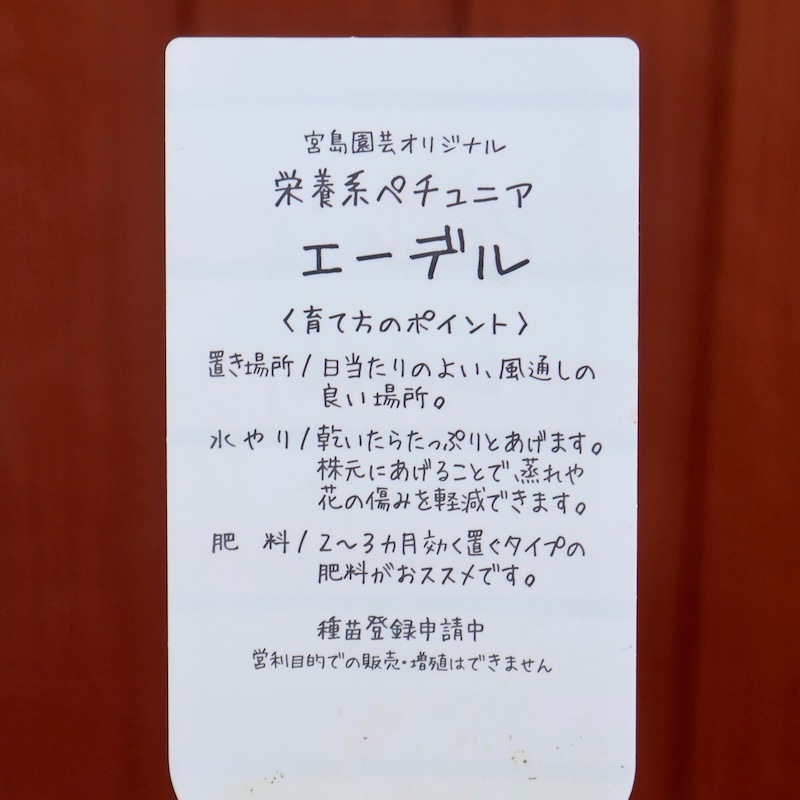 宮島園芸オリジナル
栄養系ペチュニア
エーデル
〈育て方のポイント〉
置き場所/日当たりのよい、風通しの
良い場所。
水やり/乾いたらたっぷりとあげます。
株元にあげることで、蒸れや
花の傷みを軽減できます。
肥 料/2〜3カ月効く置くタイプの
肥料がおススメです。
種苗登録申請中
営利目的での販売・増殖はできません